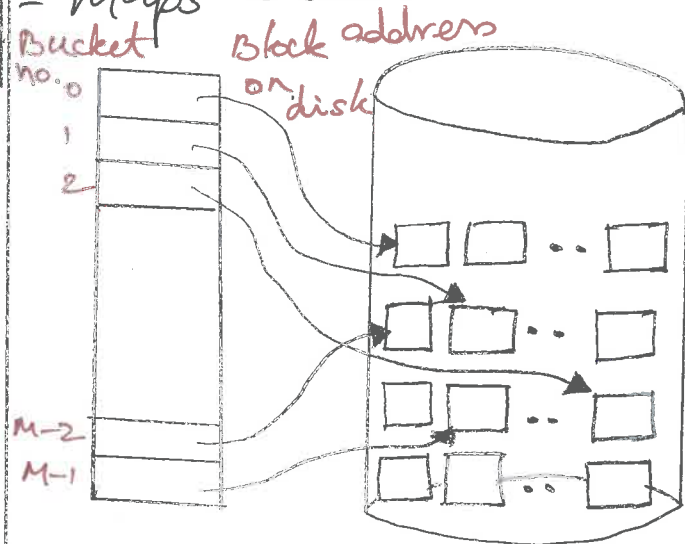 = Maps
Bucket no.
Block address on disk
0
1
2
M-2
M-1